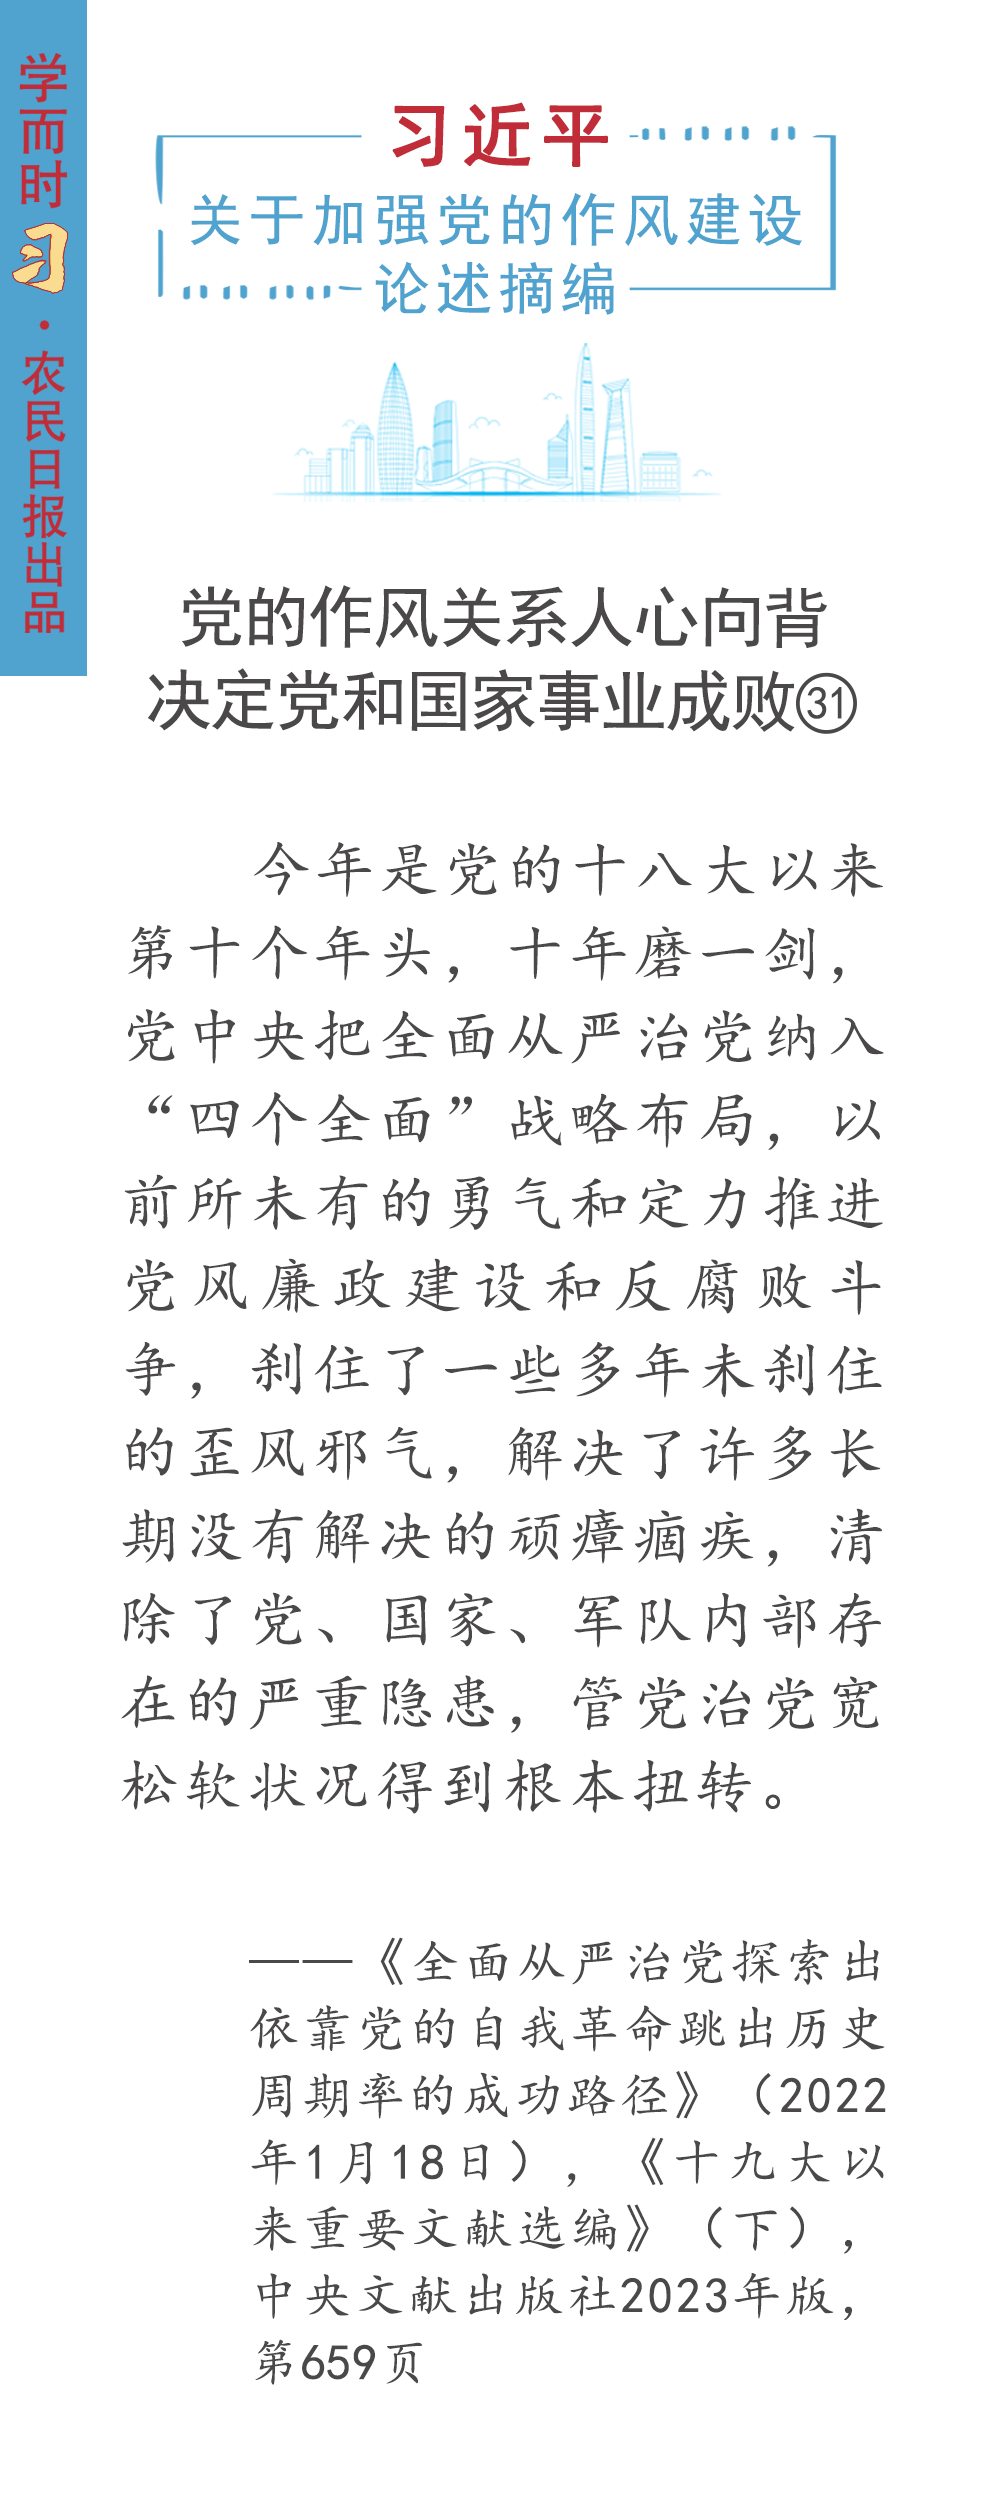 学而时习·农民日报出品
习近平
关于加强党的作风建设
论述摘编
党的作风关系人心向背
决定党和国家事业成败㉛
今年是党的十八大以来
第十个年头，十年磨一剑，
党中央把全面从严治党纳入
“四个全面”战略布局，以
前所未有的勇气和定力推进
党风廉政建设和反腐败斗
争，刹住了一些多年未刹住
的歪风邪气，解决了许多长
期没有解决的顽瘴痼疾，清
除了党、国家、军队内部存
在的严重隐患，管党治党宽
松软状况得到根本扭转。
——《全面从严治党探索出
依靠党的自我革命跳出历史
周期率的成功路径》（2022
年1月18日），《十九大以
来重要文献选编》（下），
中央文献出版社2023年版，
第659页